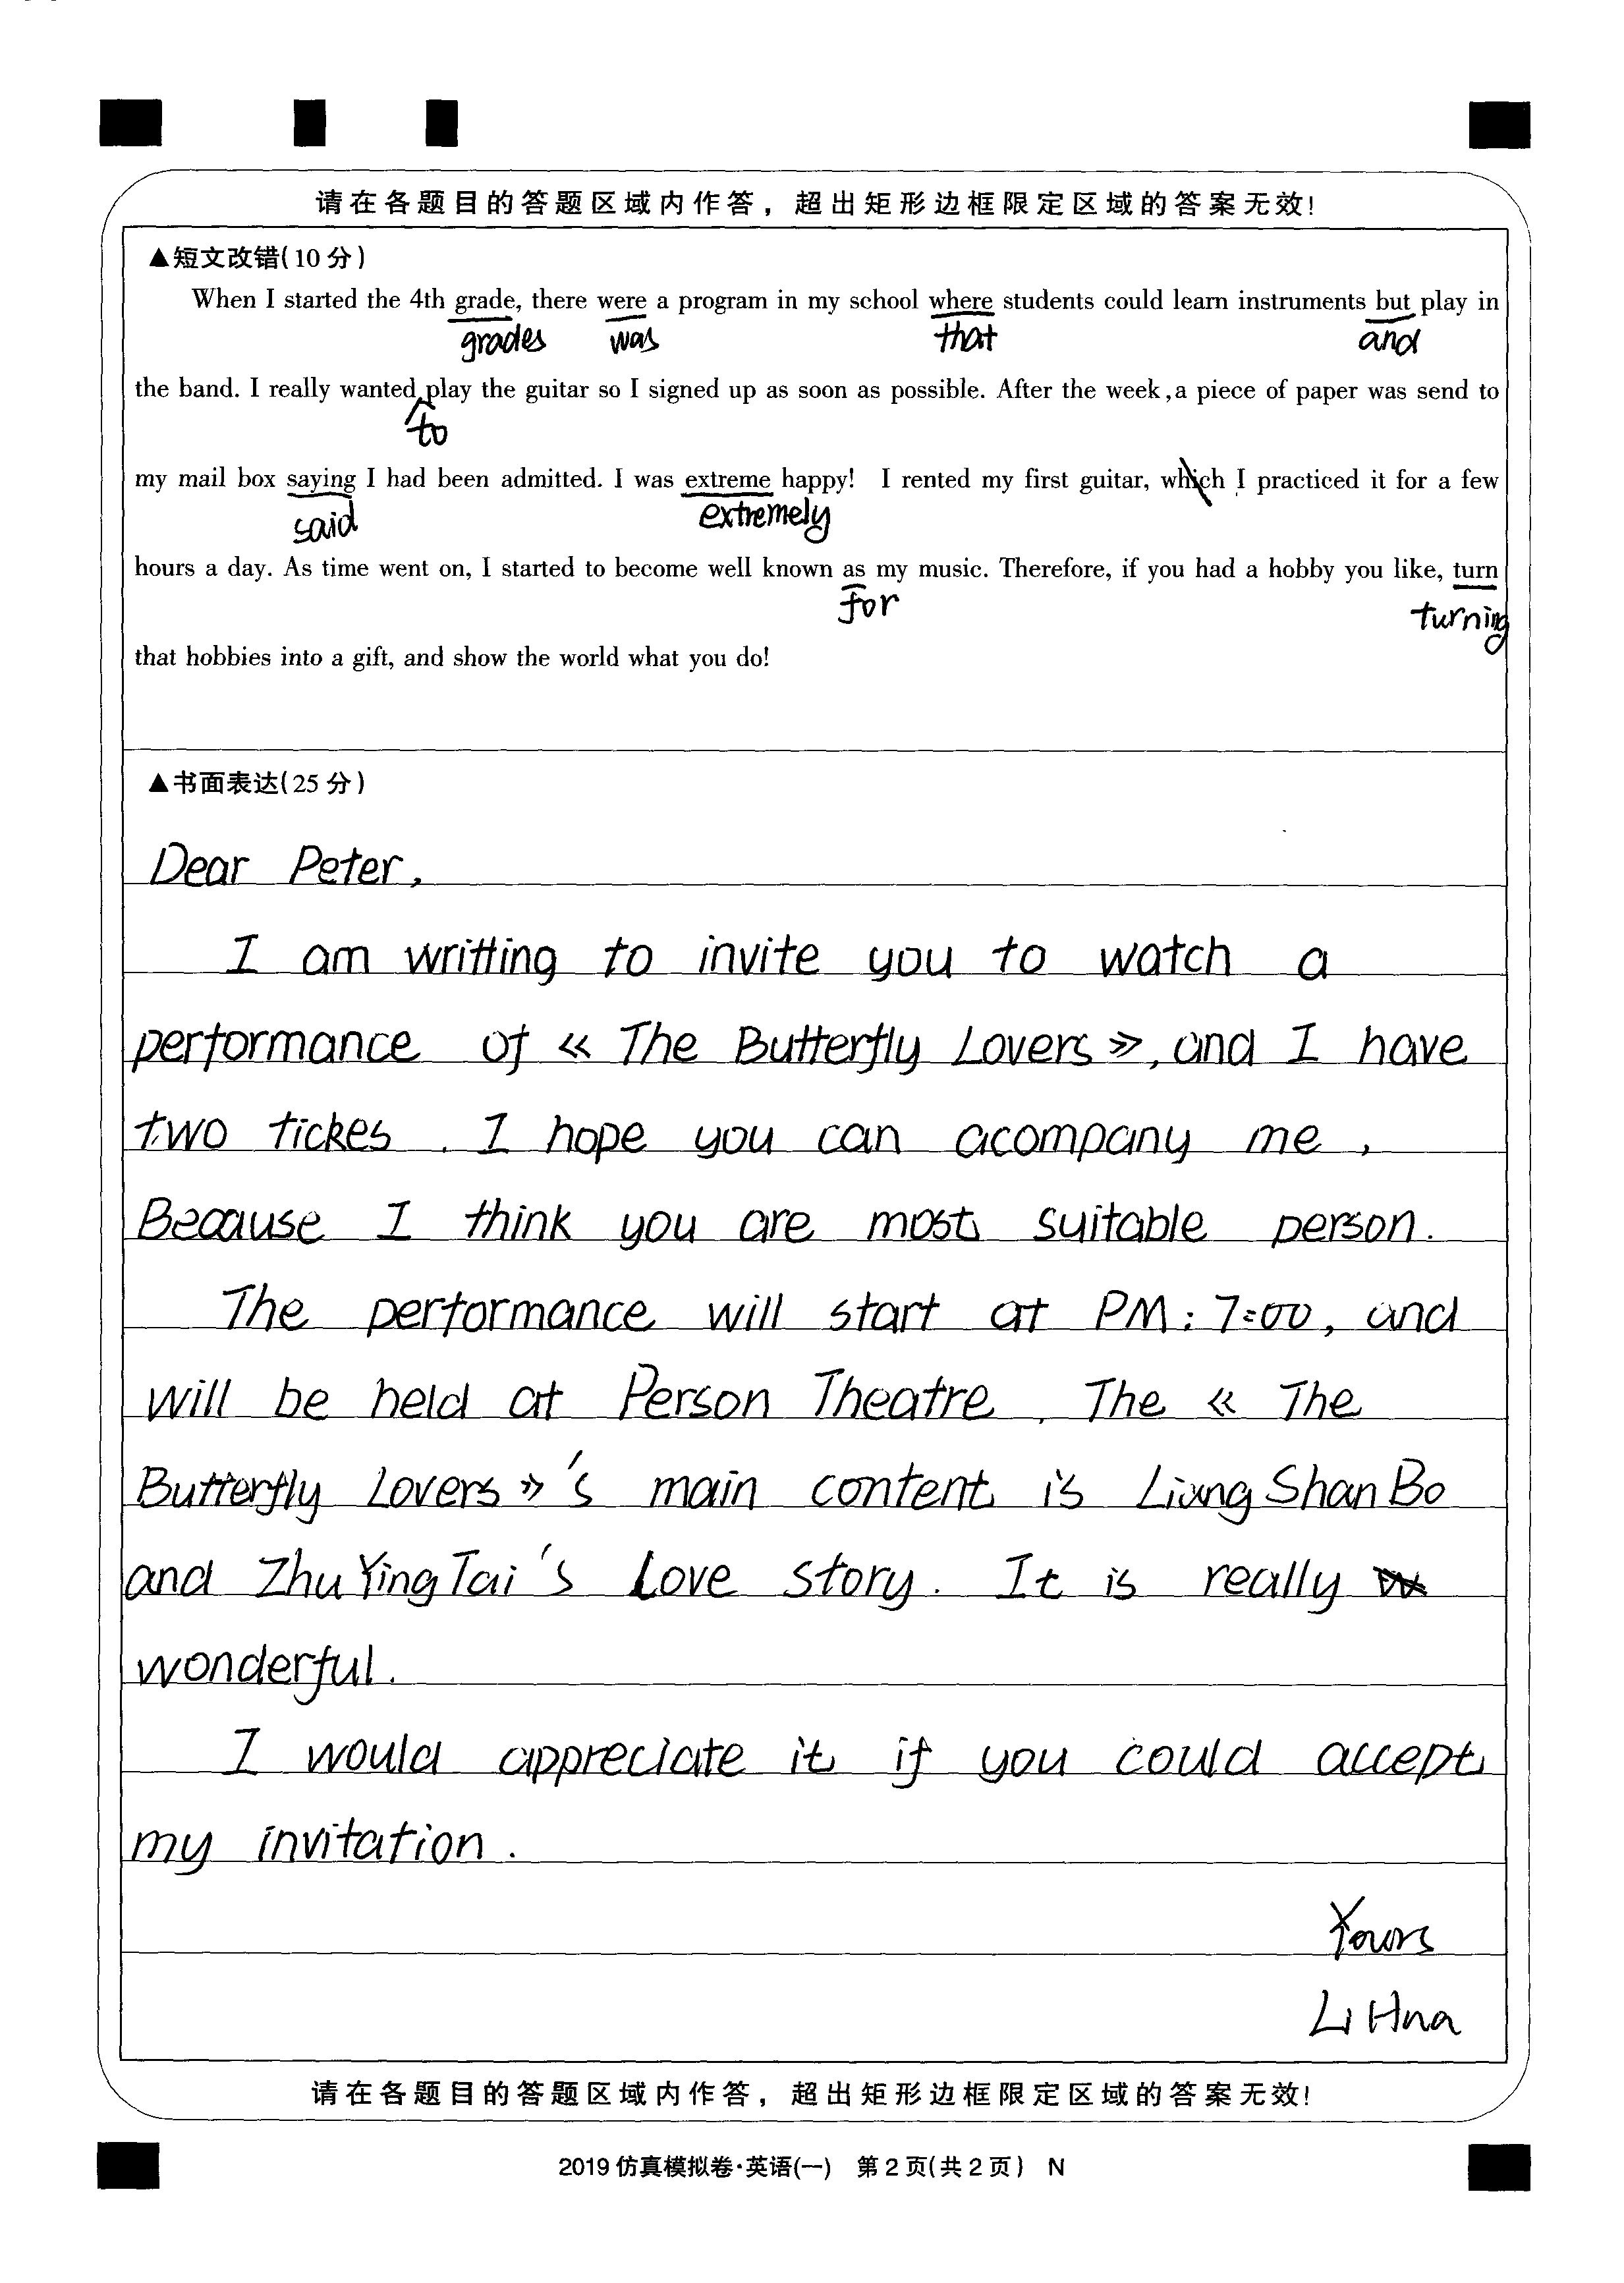 请在各题目的答题区域内作答，超出矩形边框限定区域的答案无效!
▲短文改错(10分)
When I started the 4th grade, there were a program in my school where students could learn instruments but play in
grades was that and
the band. I really wanted play the guitar so I signed up as soon as possible. After the week,a piece of paper was send to
to
my mail box saying I had been admitted. I was extreme happy! I rented my first guitar, which I practiced it for a few
said extremely
hours a day. As time went on, I started to become well known as my music. Therefore, if you had a hobby you like, turn
for turning
that hobbies into a gift, and show the world what you do!
▲书面表达(25分)
Dear Peter,
I am writting to invite you to watch a
performance of 《The Butterfly Lovers》, and I have
two tickes. I hope you can acompany me,
Because I think you are most suitable person.
The performance will start at PM: 7:00, and
will be held at Person Theatre. The 《The
Butterfly Lovers》's main content is Liang ShanBo
and ZhuYingTai's Love story. It is really
wonderful.
I would appreciate it if you could accept
my invitation.
Yours
Li Hna
请在各题目的答题区域内作答，超出矩形边框限定区域的答案无效!
2019仿真模拟卷·英语(一) 第2页(共2页) N